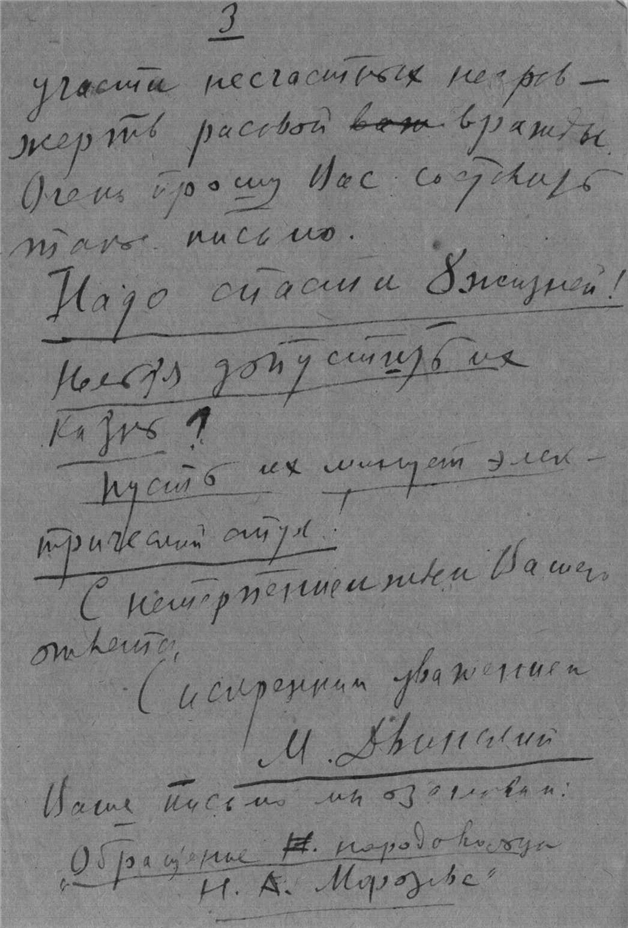 3
участи несчастных негров –
жертв расовой вражды.
Очень прошу Вас составить
такое письмо.
Надо спасти 8 жизней!
Нельзя допустить их
казнь!
Пусть их минует элек-
трический стул!
С нетерпением жжем Вашего
ответа,
С искренним уважением
М. Двинский
Ваше письмо мы озаглавим:
"Обращение Н. народовольца
Н. А. Морозова"